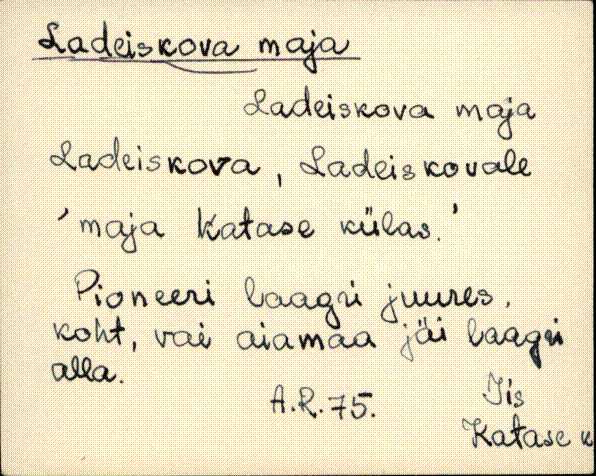 Ladeiskova maja
Ladeiskova maja
Ladeiskova, Ladeiskovale
'maja Katase külas.'
Pioneeri laagri juures,
koht, vai aiamaa jäi laagri
alla.
A.R. 75.
Iis
Katase k